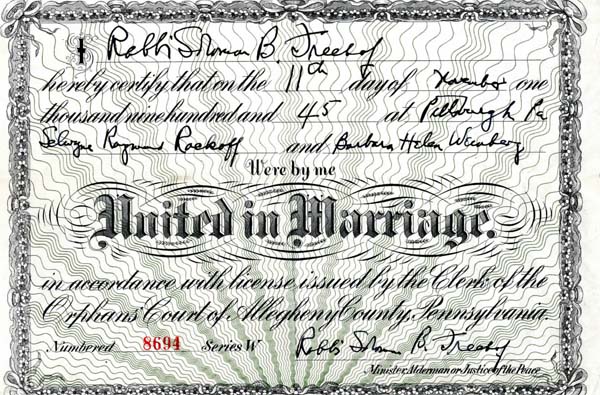 I Rabbi Solomon B. Freehof
hereby certify, that on the 11th day of November one
thousand nine hundred and 45 at Pittsburgh Pa
Selwyne Raymond Rackoff and Barbara Helen Weinberg
Were by me
United in Marriage.
in accordance with license issued by the Clerk of the
Orphans' Court of Allegheny County, Pennsylvania.
Numbered 8694 Series W Rabbi Solomon B. Freehof
Minister, Alderman or Justice of the Peace